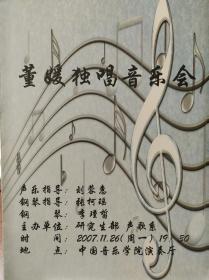 董媛独唱音乐会
声乐指导：刘蓉惠
钢琴指导：张柯瑶
钢　　琴：李瑾哲
主办单位：研究生部 声歌系
时　　间：2007.11.26(周一) 19：30
地　　点：中国音乐学院演奏厅